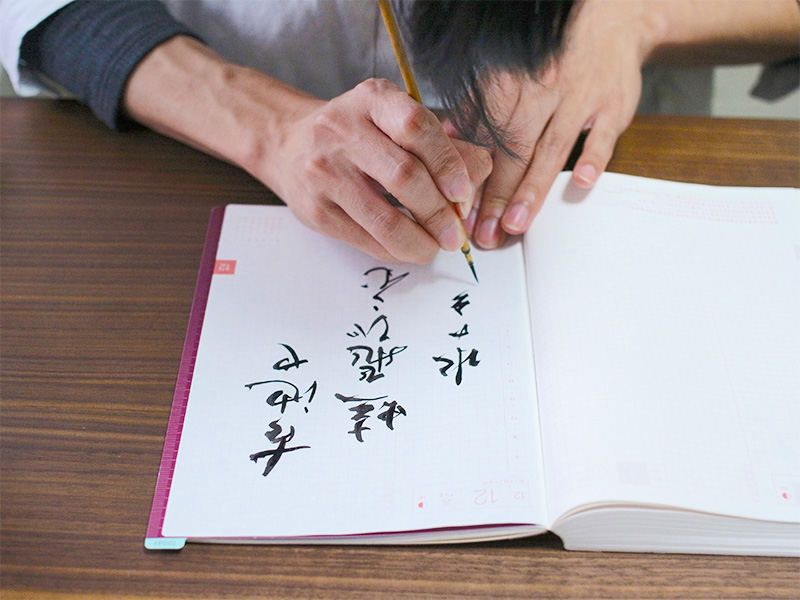 古池や
蛙飛びこむ
水の
12
12